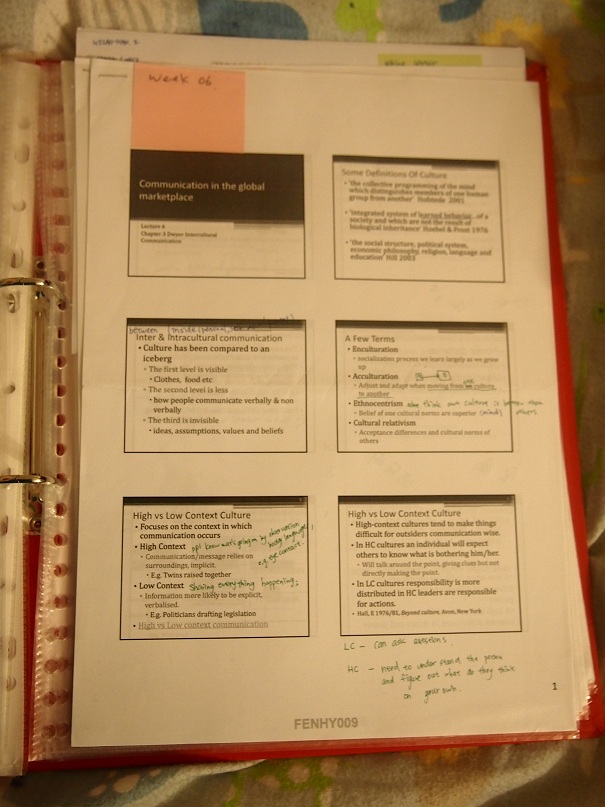 Week 06
Communication in the global
marketplace
Lecture 6
Chapter 3 Dwyer Intercultural
Communication
Some Definitions Of Culture
• 'the collective programming of the mind
which distinguishes members of one human
group from another' Hofstede 2001
• 'integrated system of learned behavior..of a
society and which are not the result of
biological inheritance' Hoebel & Frost 1976
• 'the social structure, political system,
economic philosophy, religion, language and
education' Hill 2003
between
Inter & Intracultural communication
• Culture has been compared to an
iceberg
• The first level is visible
• Clothes, food etc
• The second level is less
• how people communicate verbally & non
verbally
• The third is invisible
• ideas, assumptions, values and beliefs
A Few Terms
• Enculturation
• socialisation process we learn largely as we grow
up
• Acculturation
• Adjust and adapt when moving from one culture
to another
• Ethnocentrism we think our culture is better than
• Belief of one cultural norms are superior others.
• Cultural relativism
• Acceptance differences and cultural norms of
others
High vs Low Context Culture
• Focuses on the context in which
communication occurs
• High Context ppl know what's going on by observation
body language
e.g. eye contact.
• Communication/message relies on
surroundings, implicit.
• E.g. Twins raised together
• Low Context sharing everything happening;
• Information more likely to be explicit,
verbalised.
• E.g. Politicians drafting legislation
• High vs Low context communication
High vs Low Context Culture
• High-context cultures tend to make things
difficult for outsiders communication wise.
• In HC cultures an individual will expect
others to know what is bothering him/her.
• Will talk around the point, giving clues but not
directly making the point.
• In LC cultures responsibility is more
distributed in HC leaders are responsible
for actions.
• Hall, E 1976/81, Beyond culture, Avon, New York
LC - can ask questions.
HC - need to understand the person
and figure out what do they think
on your own.
1
FENHY009